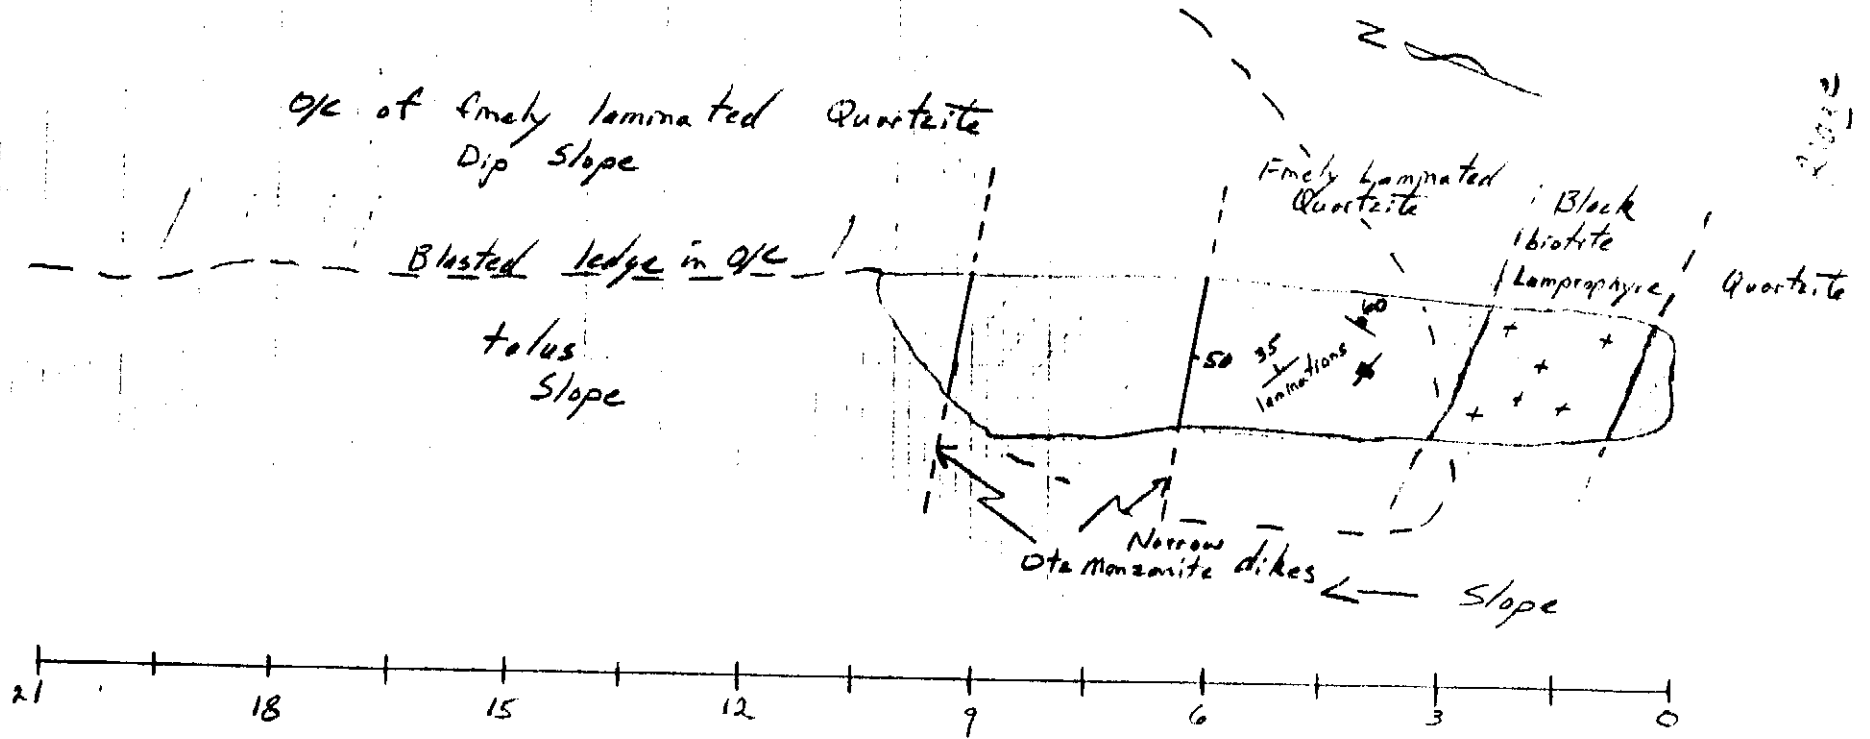 N
O/C of finely laminated Quartzite
Dip Slope
Finely Laminated
Quartzite
Black
biotite
Lamprophyre
Quartzite
Blasted ledge in O/C
talus
Slope
60
50
35
laminations
Narrow
Qtz Monzonite dikes
← Slope
21 18 15 12 9 6 3 0